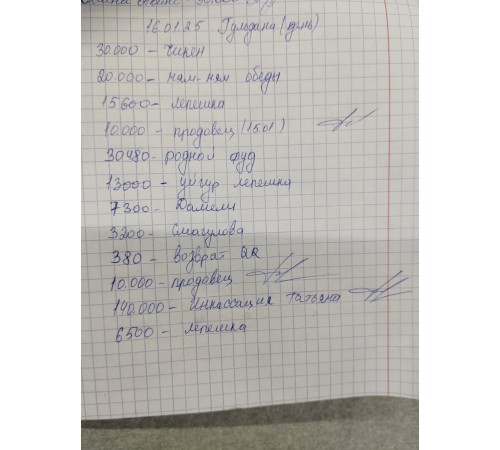 16.01.25 Гулдана (день)
30.000 – Чикен
20.000 – нам-ням обеды
15600 – лепешка
10.000 – продовец (15.01)
30480 – родной фуд
13000 – уйгур лепешка
7300 – Дамели
3200 – Смагулова
380 – возврат QR
10.000 – продовец
140.000 – Инкассация Татьяна
6500 – лепешка